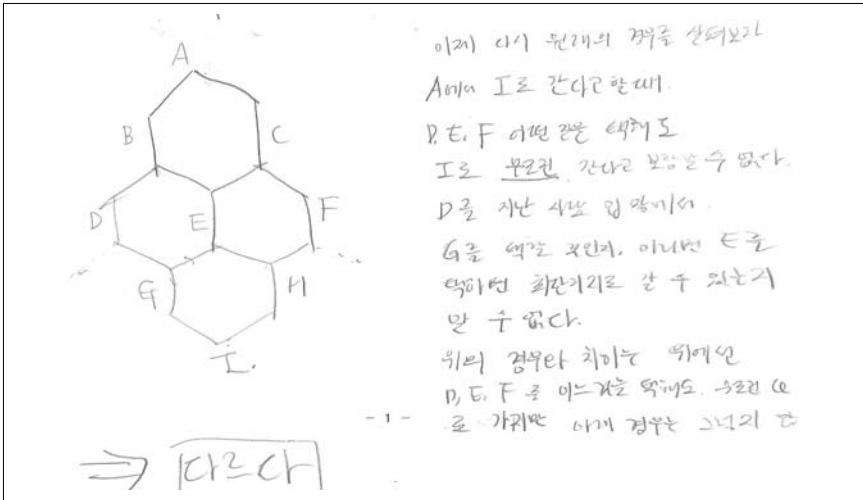 A
B
C
D
E
F
G
H
I.
이제 다시 원래의 경우를 살펴보자
A에서 I로 간다고 할때.
D, E, F 어떤 것을 택해도
I로 무조건 간다고 보장할 수 없다.
D를 지난 사람 입장에서
G를 택할 것인지, 아니면 E를
택하면 최단거리로 갈 수 있는지
알 수 없다.
위의 경우와 차이는 위에선
D, E, F 중 어느것을 택해도 무조건
로 가지만 이 경우는 그렇지
- 1 -
⇒ 다르다